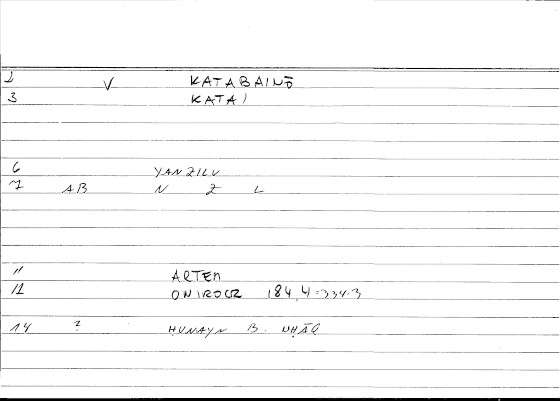 1 V KATABAINŌ
3 KATAI
6 YANZILU
7 AB N Z L
11 ARTEM
12 ONIROCR 184,4=334.3
14 ? ḤUNAYN B.